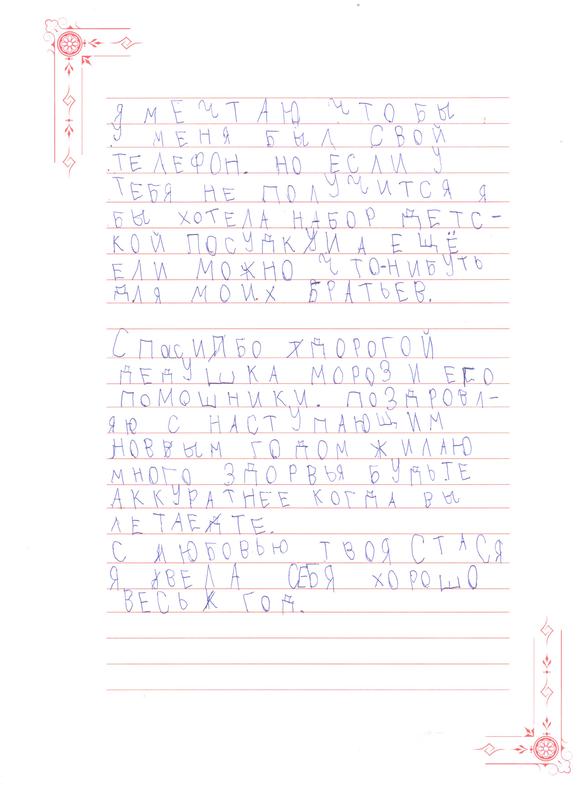 Я МЕЧТАЮ ЧТОБЫ
У МЕНЯ БЫЛ СВОЙ
ТЕЛЕФОН. НО ЕСЛИ У
ТЕБЯ НЕ ПОЛУЧИТСЯ Я
БЫ ХОТЕЛА НАБОР ДЕТС-
КОЙ ПОСУДКИ А ЕЩЁ
ЕЛИ МОЖНО ЧТО-НИБУТЬ
ДЛЯ МОИХ БРАТЬЕВ.
СПАСИБО ДОРОГОЙ
ДЕДУШКА МОРОЗ И ЕГО
ПОМОШНИКИ. ПОЗДРОВЛ-
ЯЮ С НАСТУПАЮЩИМ
НОВВЫМ ГОДОМ ЖИЛАЮ
МНОГО ЗДОРВЬЯ БУДЬТЕ
АККУРАТНЕЕ КОГДА ВЫ
ЛЕТАЕТЕ.
С ЛЮБОВЬЮ ТВОЯ СТАСЯ
Я ВЕЛА СЕБЯ ХОРОШО
ВЕСЬ ГОД.